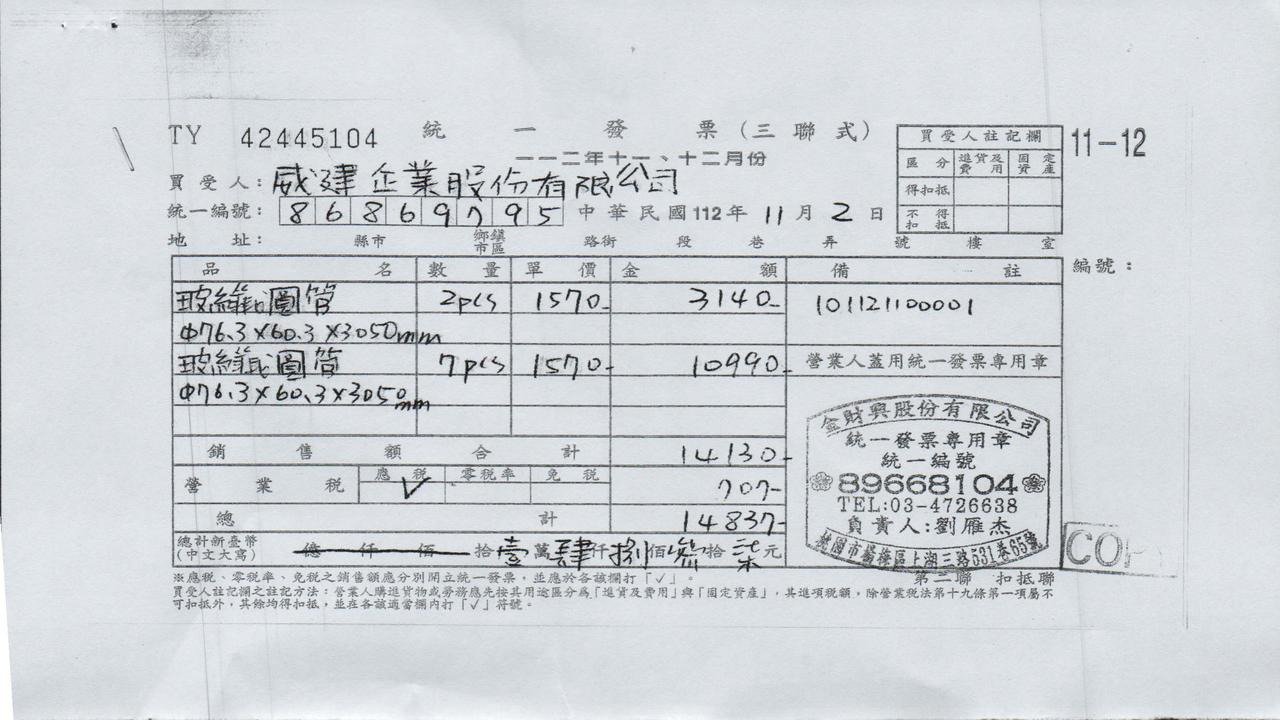 TY 42445104 統一發票(三聯式) 11-12
一一二年十一、十二月份
買受人註記欄
區分 進貨及費用 固定資產
得扣抵
不得扣抵
買受人:威建企業股份有限公司
統一編號:86869795 中華民國112年11月2日
地址: 縣市 鄉鎮市區 路街 段 巷 弄 號 樓 室
品名 數量 單價 金額 備註 編號:
玻纖 圓管 2pcs 1570- 3140- 101121100001
Φ76.3×60.3×3050mm
玻纖 圓管 7pcs 1570- 10990- 營業人蓋用統一發票專用章
Φ76.3×60.3×3050mm
銷售額合計 14130-
營業稅 應稅 零稅率 免稅 707-
✓
總計 14837-
總計新臺幣(中文大寫) 億仟佰拾壹萬肆仟捌佰參拾柒元
金財興股份有限公司
統一發票專用章
統一編號
89668104
TEL:03-4726638
負責人:劉雁杰
桃園市楊梅區上湖三路531巷65號
※應稅、零稅率、免稅之銷售額應分別開立統一發票,並應於各該欄打「✓」。 第二聯 扣抵聯
買受人註記欄之註記方法:營業人購進貨物或勞務應先按其用途區分為「進貨及費用」與「固定資產」,其進項稅額,除營業稅法第十九條第一項屬不
可扣抵外,其餘均得扣抵,並在各該適當欄內打「✓」符號。